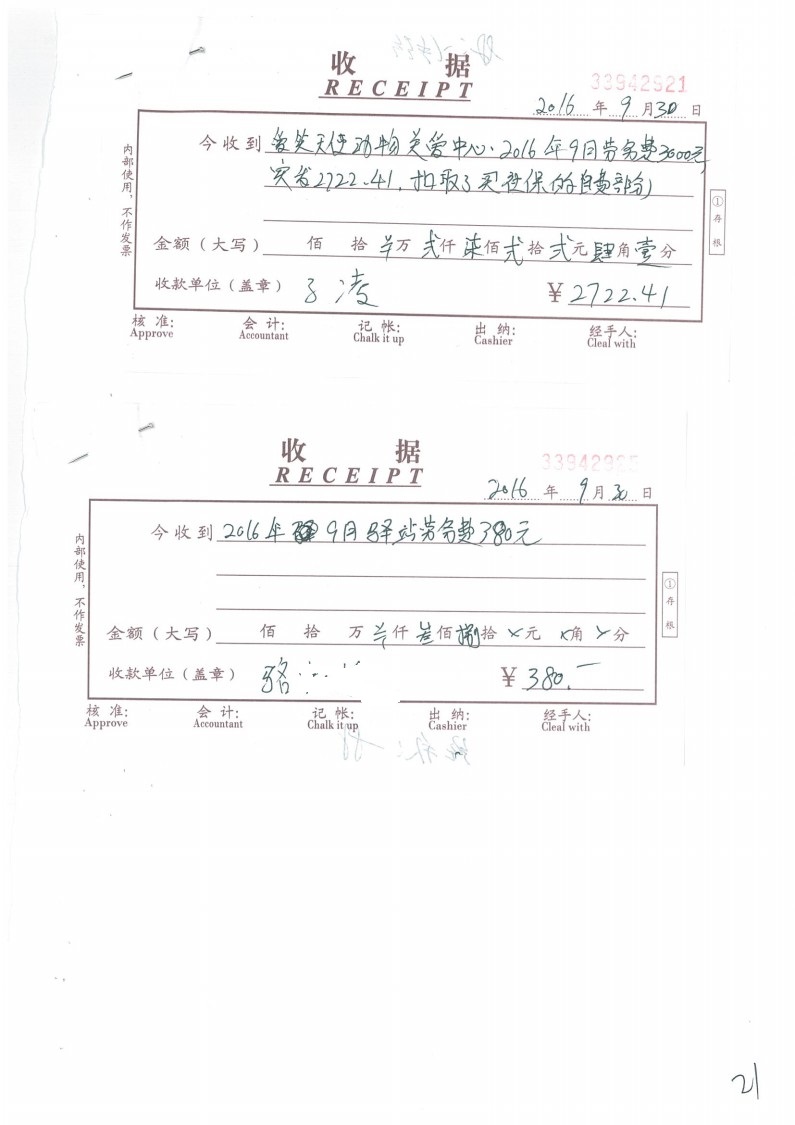 收 据
RECEIPT
33942521
2016 年 9 月 30 日
今收到 爱笑天使动物关爱中心.2016年9月劳务费3000元
实发2722.41,扣取了买社保的自费部分)
金额(大写) 佰 拾 万 弍仟 柒佰 弍拾 弍元 肆角 壹分
收款单位(盖章) 凌 ¥ 2722.41
内部使用,不作发票
①存根
核 准: 会 计: 记 帐: 出 纳: 经手人:
Approve Accountant Chalk it up Cashier Cleal with
收 据
RECEIPT
339429
2016 年 9 月 30 日
今收到 2016年 9月驿站劳务费380元
金额(大写) 佰 拾 万 仟 叁佰 捌拾 ×元 ×角 ×分
收款单位(盖章) 骆 ¥ 380.—
内部使用,不作发票
①存根
核 准: 会 计: 记 帐: 出 纳: 经手人:
Approve Accountant Chalk it up Cashier Cleal with
21